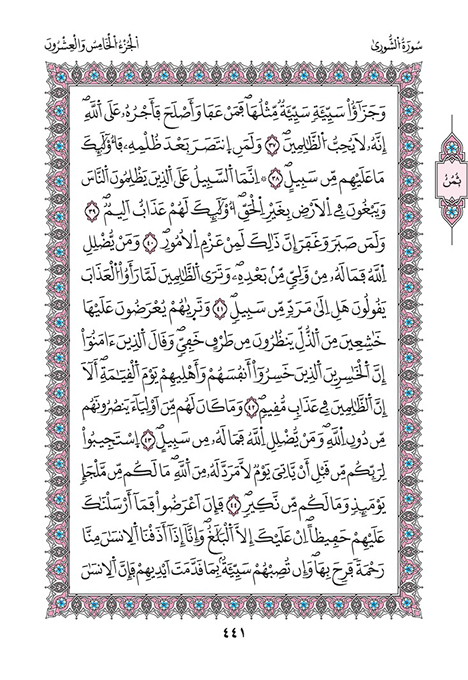 سُورَةُ الشُّورىٰ
اَلْجُزْءُ الْخَامِسُ وَالْعِشْرُونَ
وَجَزَٰٓؤُاْ سَيِّئَةٖ سَيِّئَةٞ مِّثْلُهَاۖ فَمَنْ عَفَا وَأَصْلَحَ فَأَجْرُهُۥ عَلَى اَللَّهِۖ
إِنَّهُۥ لَا يُحِبُّ اُلظَّٰلِمِينَۖ ٣٧ وَلَمَنِ اِنتَصَرَ بَعْدَ ظُلْمِهِۦ فَأُوْلَٰٓئِكَ
مَا عَلَيْهِم مِّن سَبِيلٍۖ ٣٨ ۞ اِنَّمَا اَلسَّبِيلُ عَلَى اَلذِينَ يَظْلِمُونَ اَلنَّاسَ
وَيَبْغُونَ فِے اِلَارْضِ بِغَيْرِ اِلْحَقِّۖ أُوْلَٰٓئِكَ لَهُمْ عَذَابٌ اَلِيمٞۖ ٣٩
وَلَمَن صَبَرَ وَغَفَرَ إِنَّ ذَٰلِكَ لَمِنْ عَزْمِ اِلُامُورِۖ ٤٠ وَمَنْ يُّضْلِلِ
اِللَّهُ فَمَا لَهُۥ مِنْ وَّلِيّٖ مِّنۢ بَعْدِهِۦۖ وَتَرَى اَلظَّٰلِمِينَ لَمَّا رَأَوُاْ اُلْعَذَابَ
يَقُولُونَ هَلِ اِلَىٰ مَرَدّٖ مِّن سَبِيلٖۖ ٤١ وَتَرَىٰهُمْ يُعْرَضُونَ عَلَيْهَا
خَٰشِعِينَ مِنَ اَلذُّلِّ يَنظُرُونَ مِن طَرْفٍ خَفِيّٖۖ وَقَالَ اَلذِينَ ءَامَنُوٓاْ
إِنَّ اَلْخَٰسِرِينَ اَلذِينَ خَسِرُوٓاْ أَنفُسَهُمْ وَأَهْلِيهِمْ يَوْمَ اَلْقِيَٰمَةِۖ أَلَآ
إِنَّ اَلظَّٰلِمِينَ فِے عَذَابٖ مُّقِيمٖۖ ٤٢ وَمَا كَانَ لَهُم مِّنَ اَوْلِيَآءَ يَنصُرُونَهُم
مِّن دُونِ اِللَّهِۖ وَمَنْ يُّضْلِلِ اِللَّهُ فَمَا لَهُۥ مِن سَبِيلٍۖ ٤٣ اِسْتَجِيبُواْ
لِرَبِّكُم مِّن قَبْلِ أَنْ يَّاتِيَ يَوْمٞ لَّا مَرَدَّ لَهُۥ مِنَ اَللَّهِۖ مَا لَكُم مِّن مَّلْجَإٖ
يَوْمَئِذٖ وَمَا لَكُم مِّن نَّكِيرٖۖ ٤٤ فَإِنَ اَعْرَضُواْ فَمَآ أَرْسَلْنَٰكَ
عَلَيْهِمْ حَفِيظاًۖ اِنْ عَلَيْكَ إِلَّا اَلْبَلَٰغُۖ وَإِنَّآ إِذَآ أَذَقْنَا اَلِانسَٰنَ مِنَّا
رَحْمَةٗ فَرِحَ بِهَاۖ وَإِن تُصِبْهُمْ سَيِّئَةُۢ بِمَا قَدَّمَتَ اَيْدِيهِمْ فَإِنَّ اَلِانسَٰنَ
ثُمُنُ
٤٤١